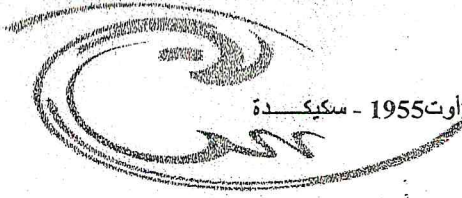 أوت1955 - سكيكدة